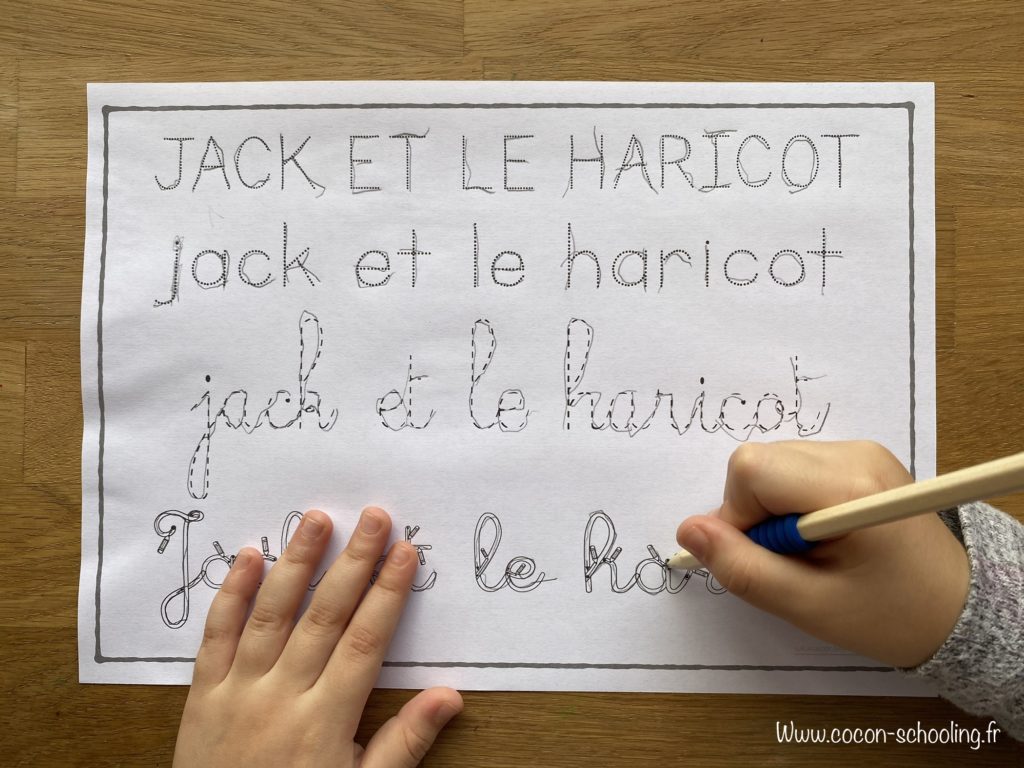 JACK ET LE HARICOT
jack et le haricot
jack et le haricot
et le
Www.cocon-schooling.fr